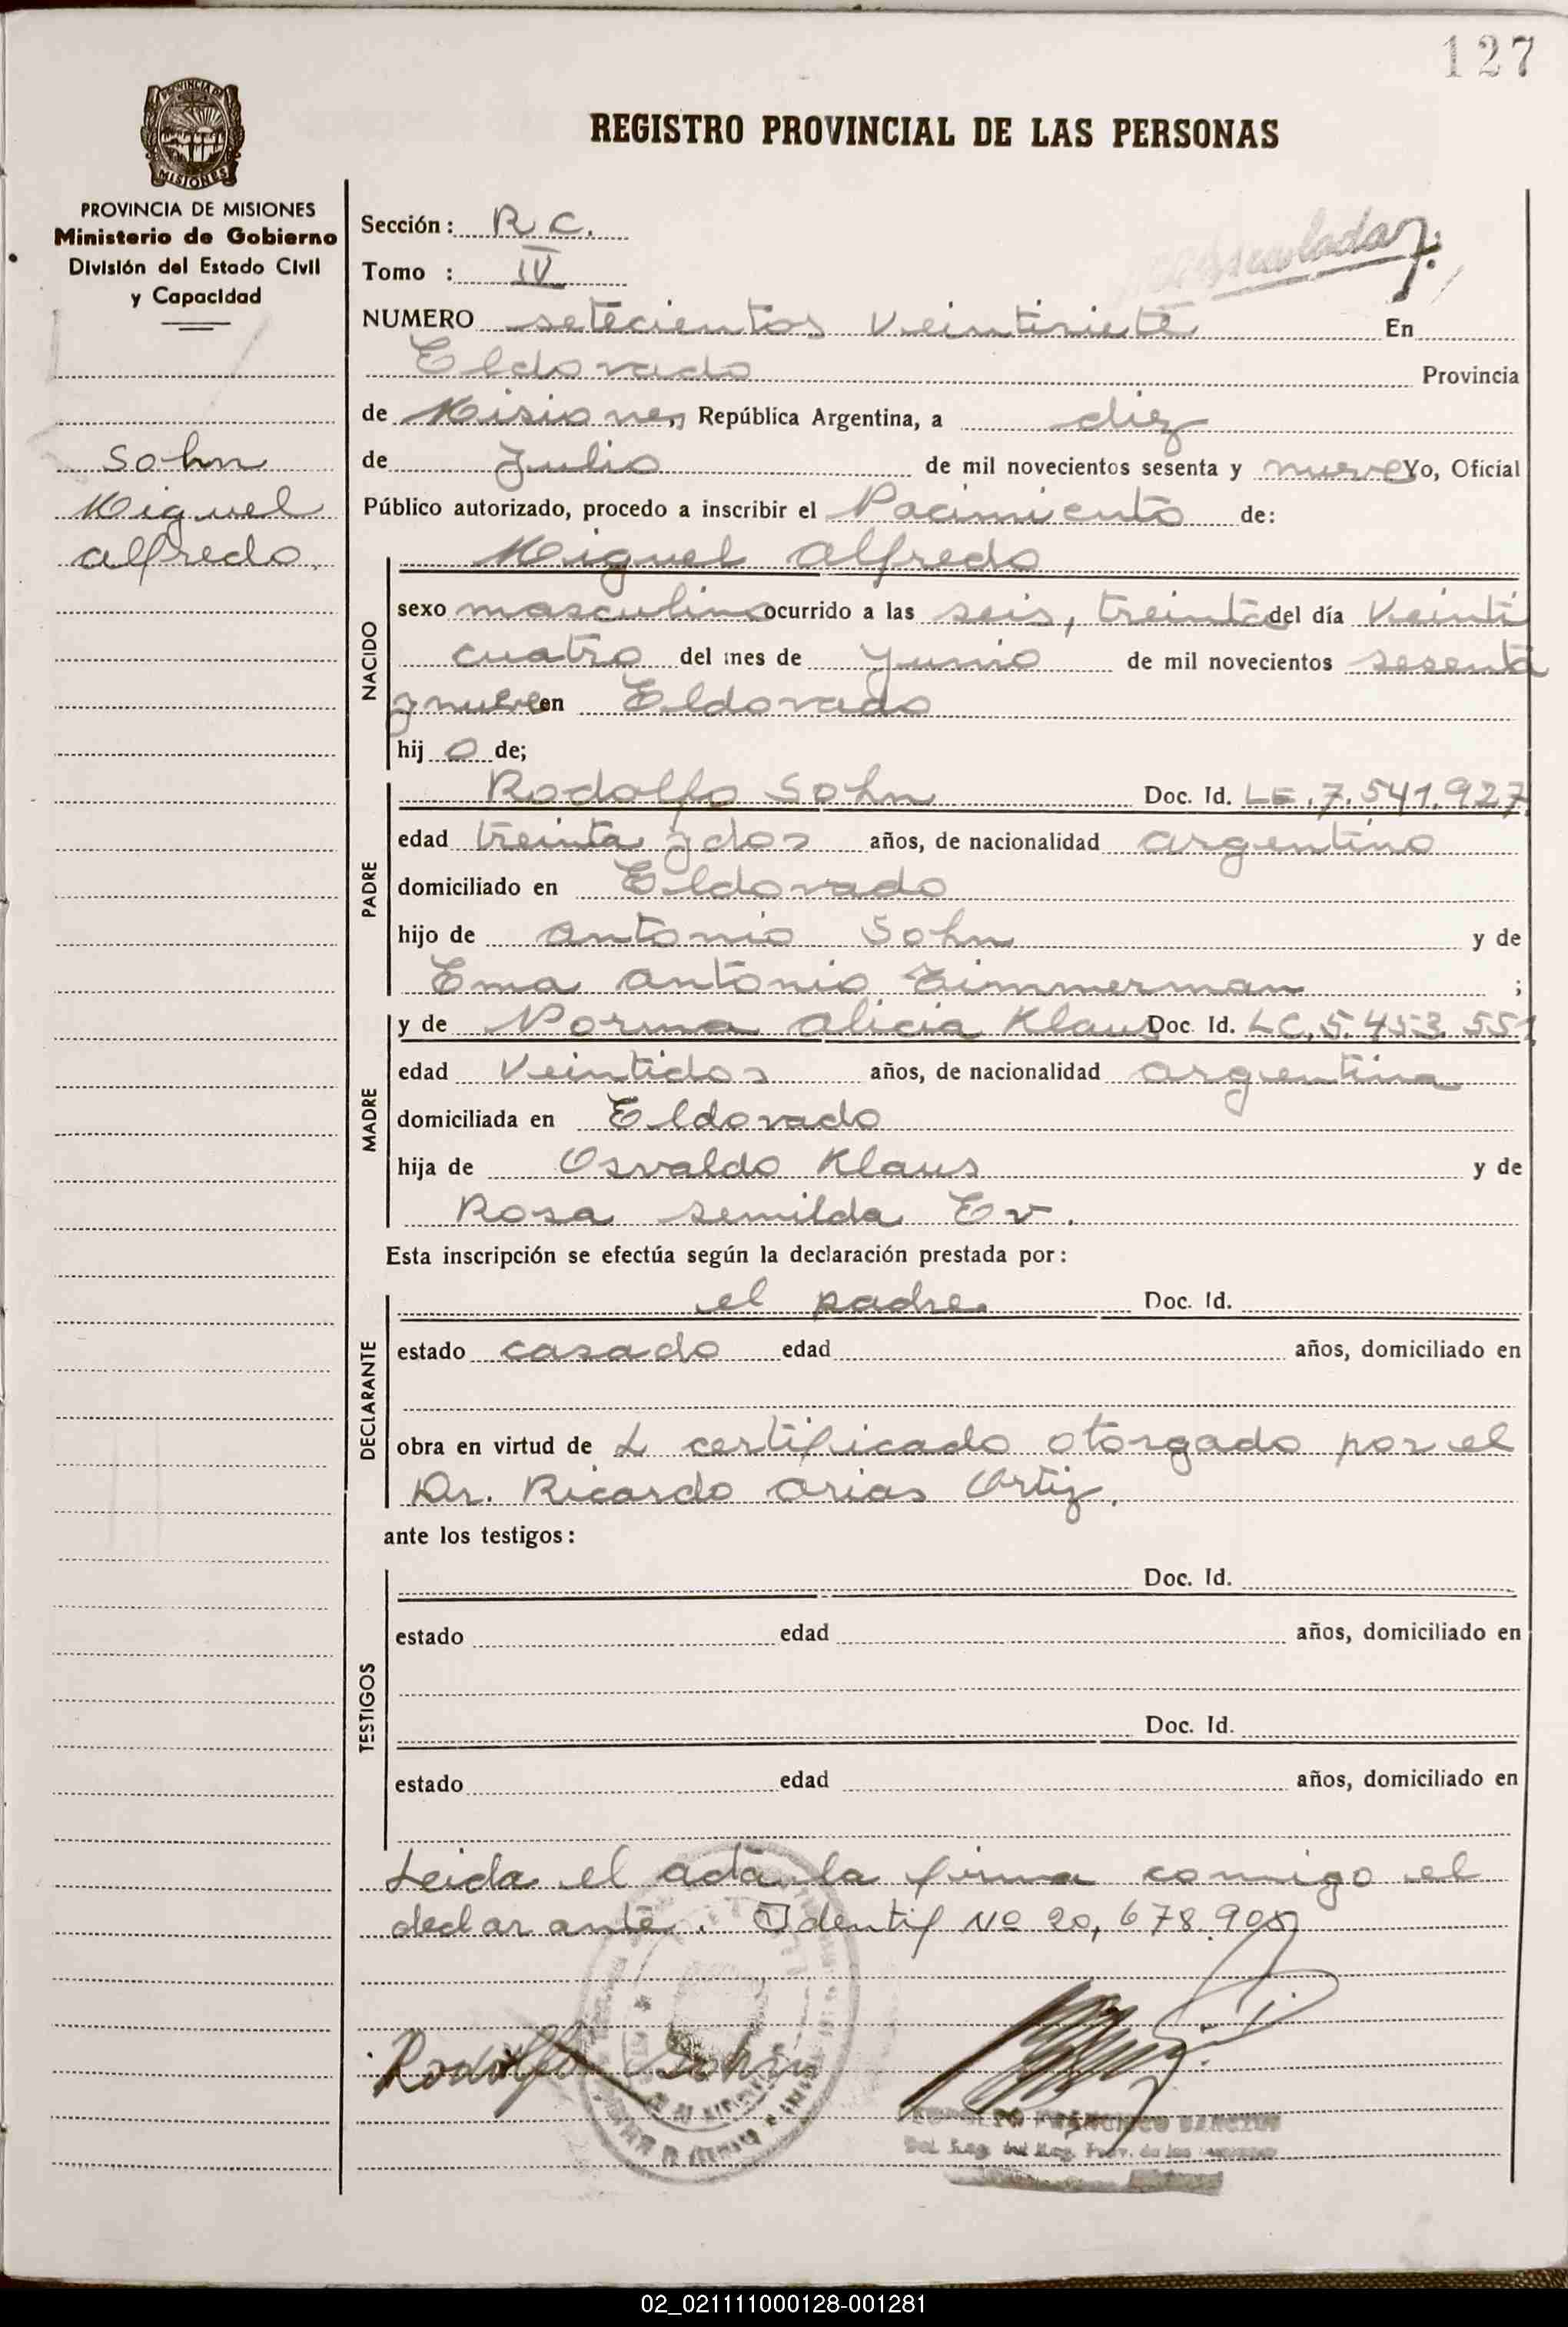 127
PROVINCIA DE
MISIONES
REGISTRO PROVINCIAL DE LAS PERSONAS
PROVINCIA DE MISIONES
Ministerio de Gobierno
División del Estado Civil
y Capacidad
Sohn
Miguel
alfredo.
Sección: R C.
Tomo : IV
NUMERO setecientos veintisiete En
Eldorado Provincia
de Misiones, República Argentina, a diez
de Julio de mil novecientos sesenta y nueve Yo, Oficial
Público autorizado, procedo a inscribir el Nacimiento de:
NACIDO
Miguel Alfredo
sexo masculino ocurrido a las seis, treinta del día Veinti
cuatro del mes de Junio de mil novecientos sesenta
y nueve en Eldorado
hij o de;
PADRE
Rodolfo Sohn Doc. Id. LE.7.541.927
edad treinta y dos años, de nacionalidad argentino
domiciliado en Eldorado
hijo de Antonio Sohn y de
Ema Antonio Zimmerman ;
MADRE
y de Norma Alicia Klaus Doc. Id. LC.5.453.551
edad Veintidos años, de nacionalidad argentina
domiciliada en Eldorado
hija de Osvaldo Klaus y de
Rosa semilda Ev.
Esta inscripción se efectúa según la declaración prestada por:
DECLARANTE
el padre Doc. Id.
estado casado edad años, domiciliado en
obra en virtud de L certificado otorgado por el
Dr. Ricardo Arias Ortiz.
ante los testigos:
TESTIGOS
Doc. Id.
estado edad años, domiciliado en
Doc. Id.
estado edad años, domiciliado en
Leida el acta la firma conmigo el
declarante. Identif Nº 20,678.905
Rodolfo Sohn
02_021111000128-001281